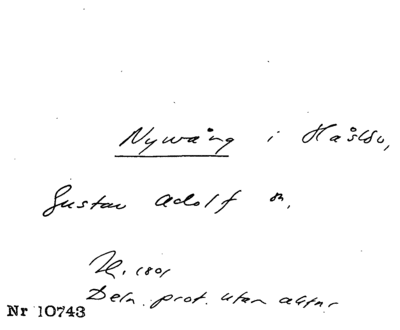 Nywång i Håslöv,
Gustav Adolf sn,
1801
Deln. prot. utan aktnr
Nr 10743